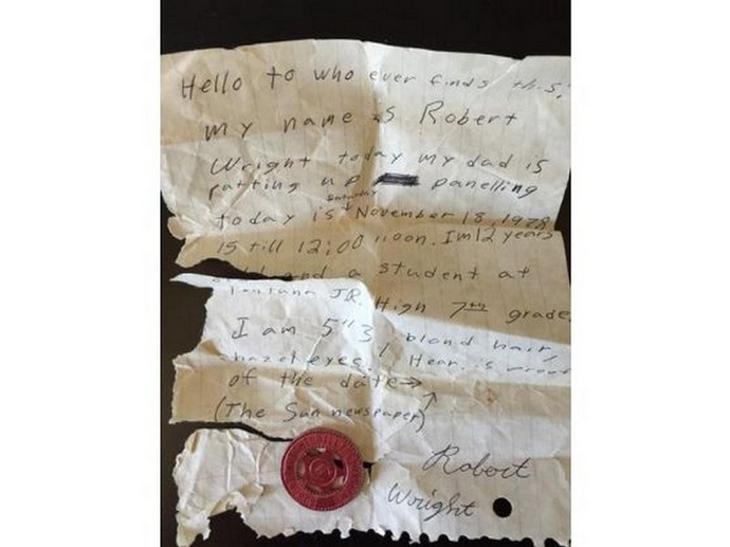 Hello to who ever finds this.
my name is Robert
Wright today my dad is
putting up panelling
today is Saturday November 18, 1978
15 till 12:00 noon. Im 12 years
old and a student at
Fontana JR. High 7th grade.
I am 5"3, blond hair,
hazel eyes. Hear is proof
of the date →
(The Sun newspaper)
Robert
Wright